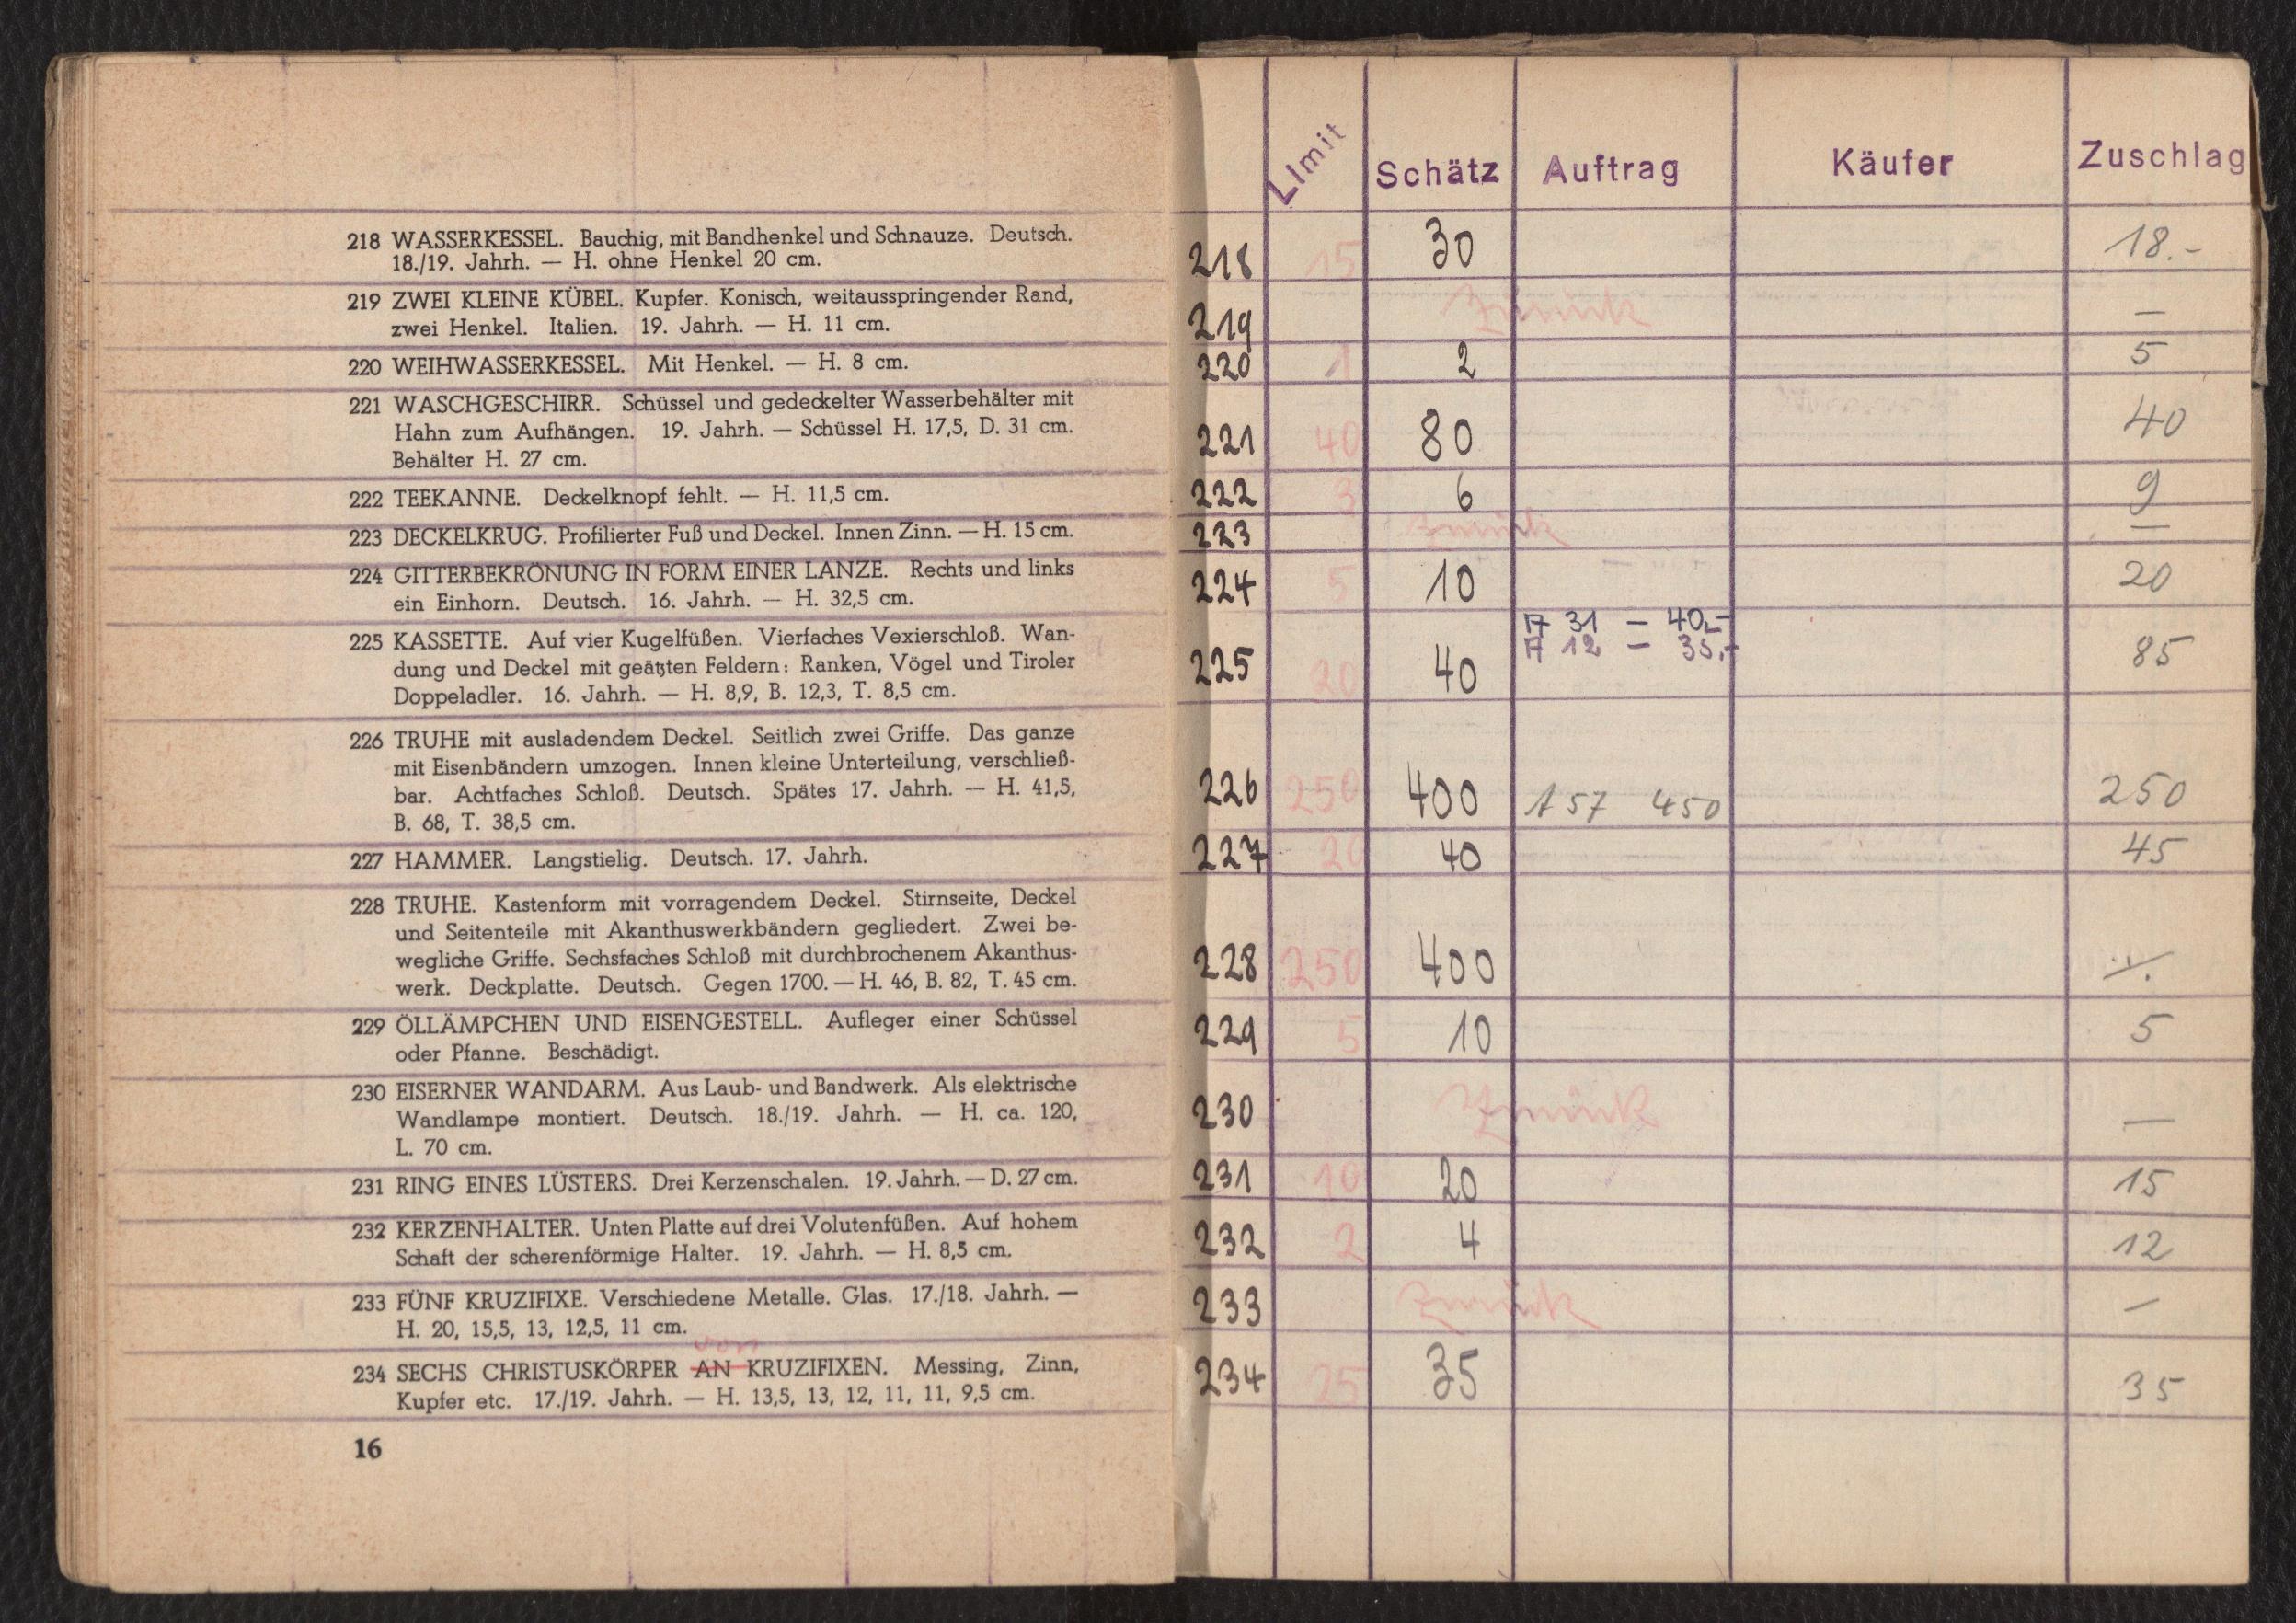 218 WASSERKESSEL. Bauchig, mit Bandhenkel und Schnauze. Deutsch.
18./19. Jahrh. — H. ohne Henkel 20 cm.
219 ZWEI KLEINE KÜBEL. Kupfer. Konisch, weitausspringender Rand,
zwei Henkel. Italien. 19. Jahrh. — H. 11 cm.
220 WEIHWASSERKESSEL. Mit Henkel. — H. 8 cm.
221 WASCHGESCHIRR. Schüssel und gedeckelter Wasserbehälter mit
Hahn zum Aufhängen. 19. Jahrh. — Schüssel H. 17,5, D. 31 cm.
Behälter H. 27 cm.
222 TEEKANNE. Deckelknopf fehlt. — H. 11,5 cm.
223 DECKELKRUG. Profilierter Fuß und Deckel. Innen Zinn. — H. 15 cm.
224 GITTERBEKRÖNUNG IN FORM EINER LANZE. Rechts und links
ein Einhorn. Deutsch. 16. Jahrh. — H. 32,5 cm.
225 KASSETTE. Auf vier Kugelfüßen. Vierfaches Vexierschloß. Wan-
dung und Deckel mit geätzten Feldern: Ranken, Vögel und Tiroler
Doppeladler. 16. Jahrh. — H. 8,9, B. 12,3, T. 8,5 cm.
226 TRUHE mit ausladendem Deckel. Seitlich zwei Griffe. Das ganze
mit Eisenbändern umzogen. Innen kleine Unterteilung, verschließ-
bar. Achtfaches Schloß. Deutsch. Spätes 17. Jahrh. — H. 41,5,
B. 68, T. 38,5 cm.
227 HAMMER. Langstielig. Deutsch. 17. Jahrh.
228 TRUHE. Kastenform mit vorragendem Deckel. Stirnseite, Deckel
und Seitenteile mit Akanthuswerkbändern gegliedert. Zwei be-
wegliche Griffe. Sechsfaches Schloß mit durchbrochenem Akanthus-
werk. Deckplatte. Deutsch. Gegen 1700. — H. 46, B. 82, T. 45 cm.
229 ÖLLÄMPCHEN UND EISENGESTELL. Aufleger einer Schüssel
oder Pfanne. Beschädigt.
230 EISERNER WANDARM. Aus Laub- und Bandwerk. Als elektrische
Wandlampe montiert. Deutsch. 18./19. Jahrh. — H. ca. 120,
L. 70 cm.
231 RING EINES LÜSTERS. Drei Kerzenschalen. 19. Jahrh. — D. 27 cm.
232 KERZENHALTER. Unten Platte auf drei Volutenfüßen. Auf hohem
Schaft der scherenförmige Halter. 19. Jahrh. — H. 8,5 cm.
233 FÜNF KRUZIFIXE. Verschiedene Metalle. Glas. 17./18. Jahrh. —
H. 20, 15,5, 13, 12,5, 11 cm.
von
234 SECHS CHRISTUSKÖRPER AN KRUZIFIXEN. Messing, Zinn,
Kupfer etc. 17./19. Jahrh. — H. 13,5, 13, 12, 11, 11, 9,5 cm.
16
LImit Schätz Auftrag Käufer Zuschlag
218 15 30 18.-
219 Zurück —
220 1 2 5
221 40 80 40
222 3 6 9
223 Zurück —
224 5 10 20
A 31 — 40.-
A 12 — 35.-
225 20 40 85
226 250 400 A 57 450 250
227 20 40 45
228 250 400
229 5 10 5
230 Zurück —
231 10 20 15
232 2 4 12
233 Zurück —
234 25 35 35